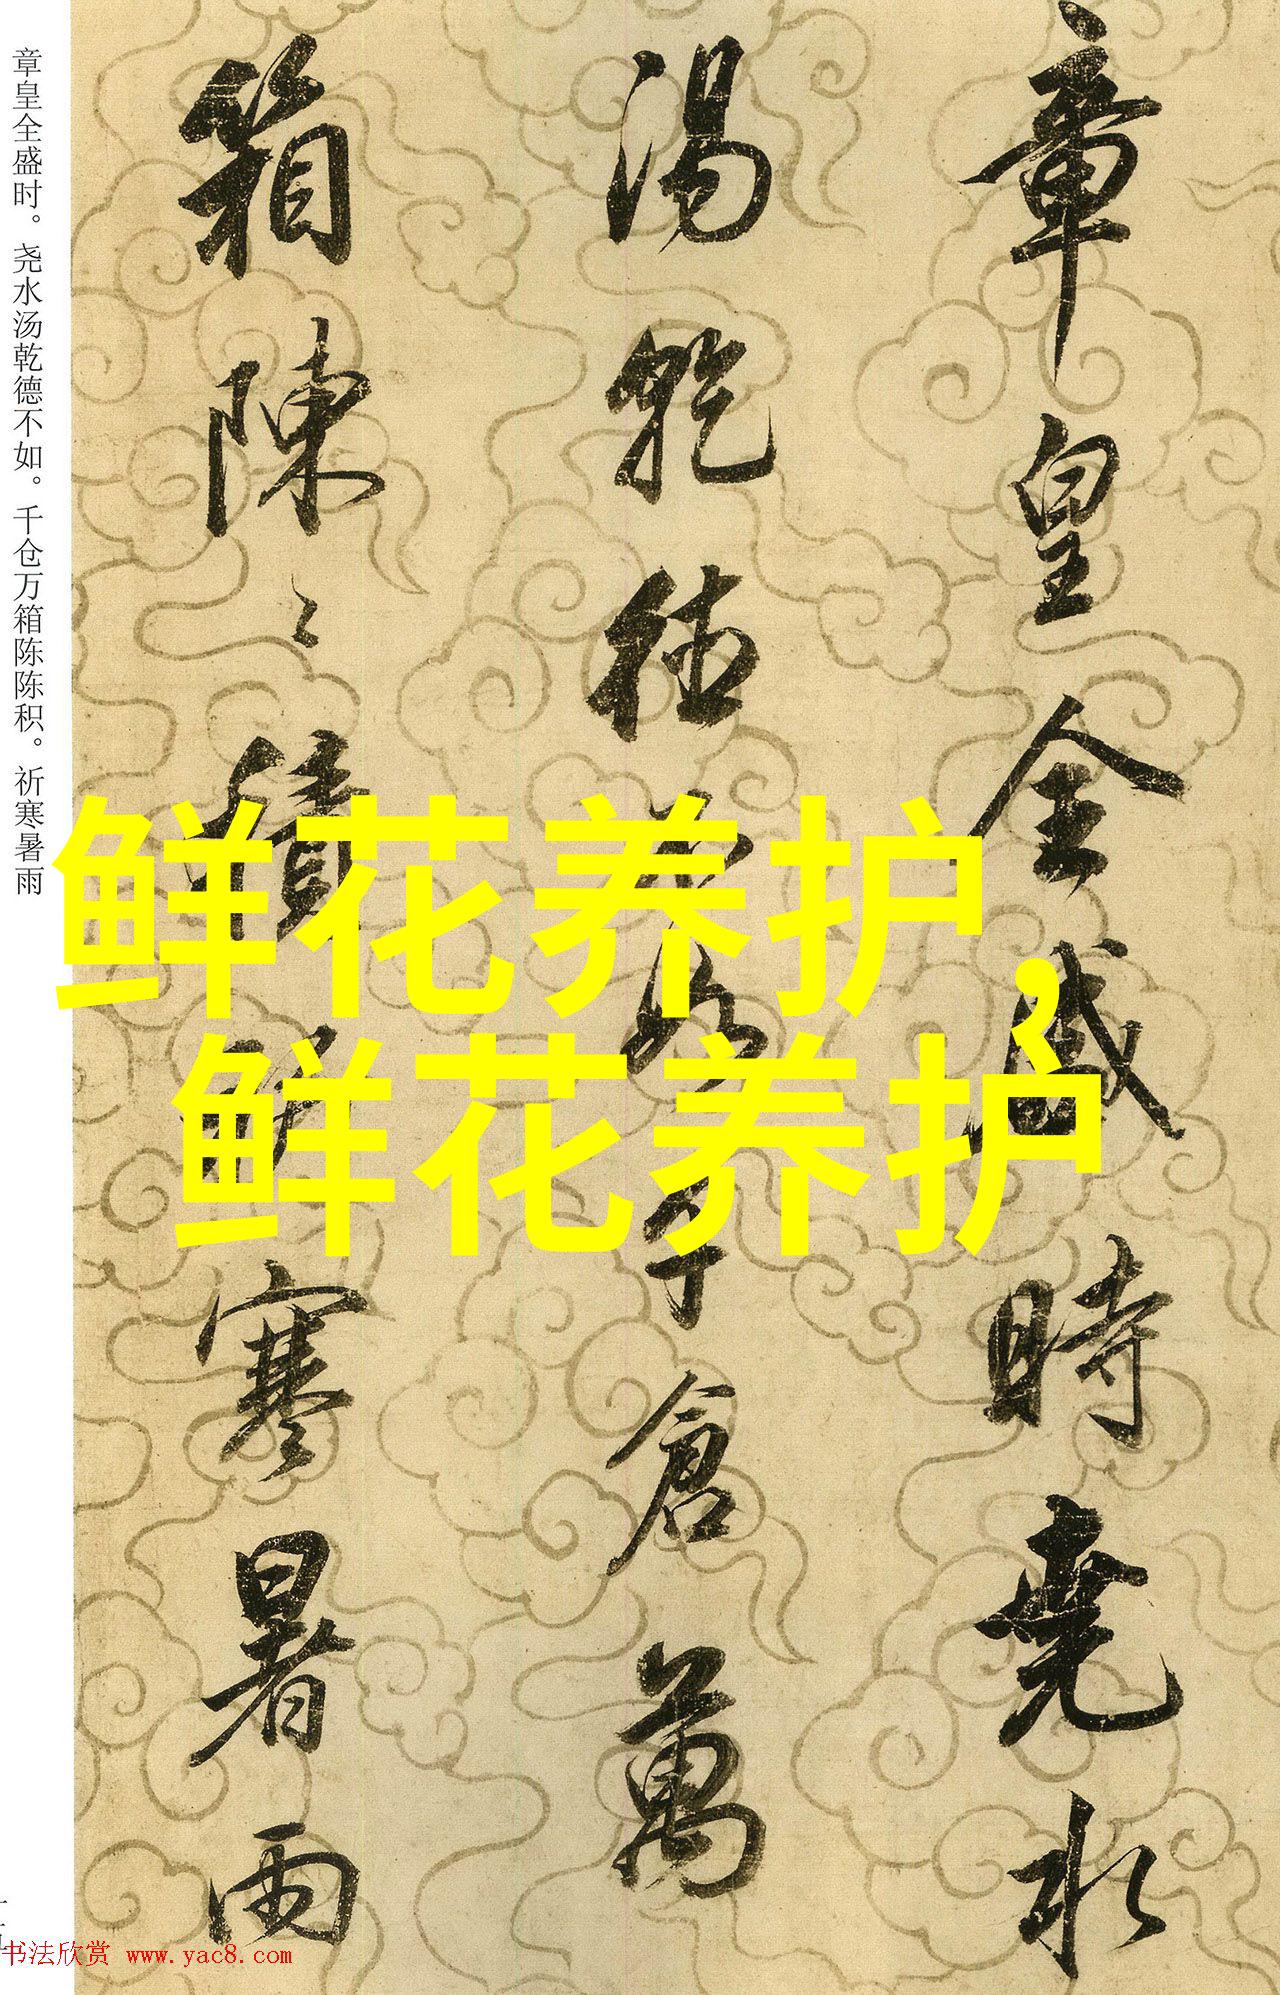 章皇全盛時堯水
湯乾德不如千倉萬
箱陳〻積祈寒暑雨
章皇全盛时。尧水汤乾德不如。千仓万箱陈陈积。祈寒暑雨
鲜花养护，
鲜花养护
书法欣赏 www.yac8.com